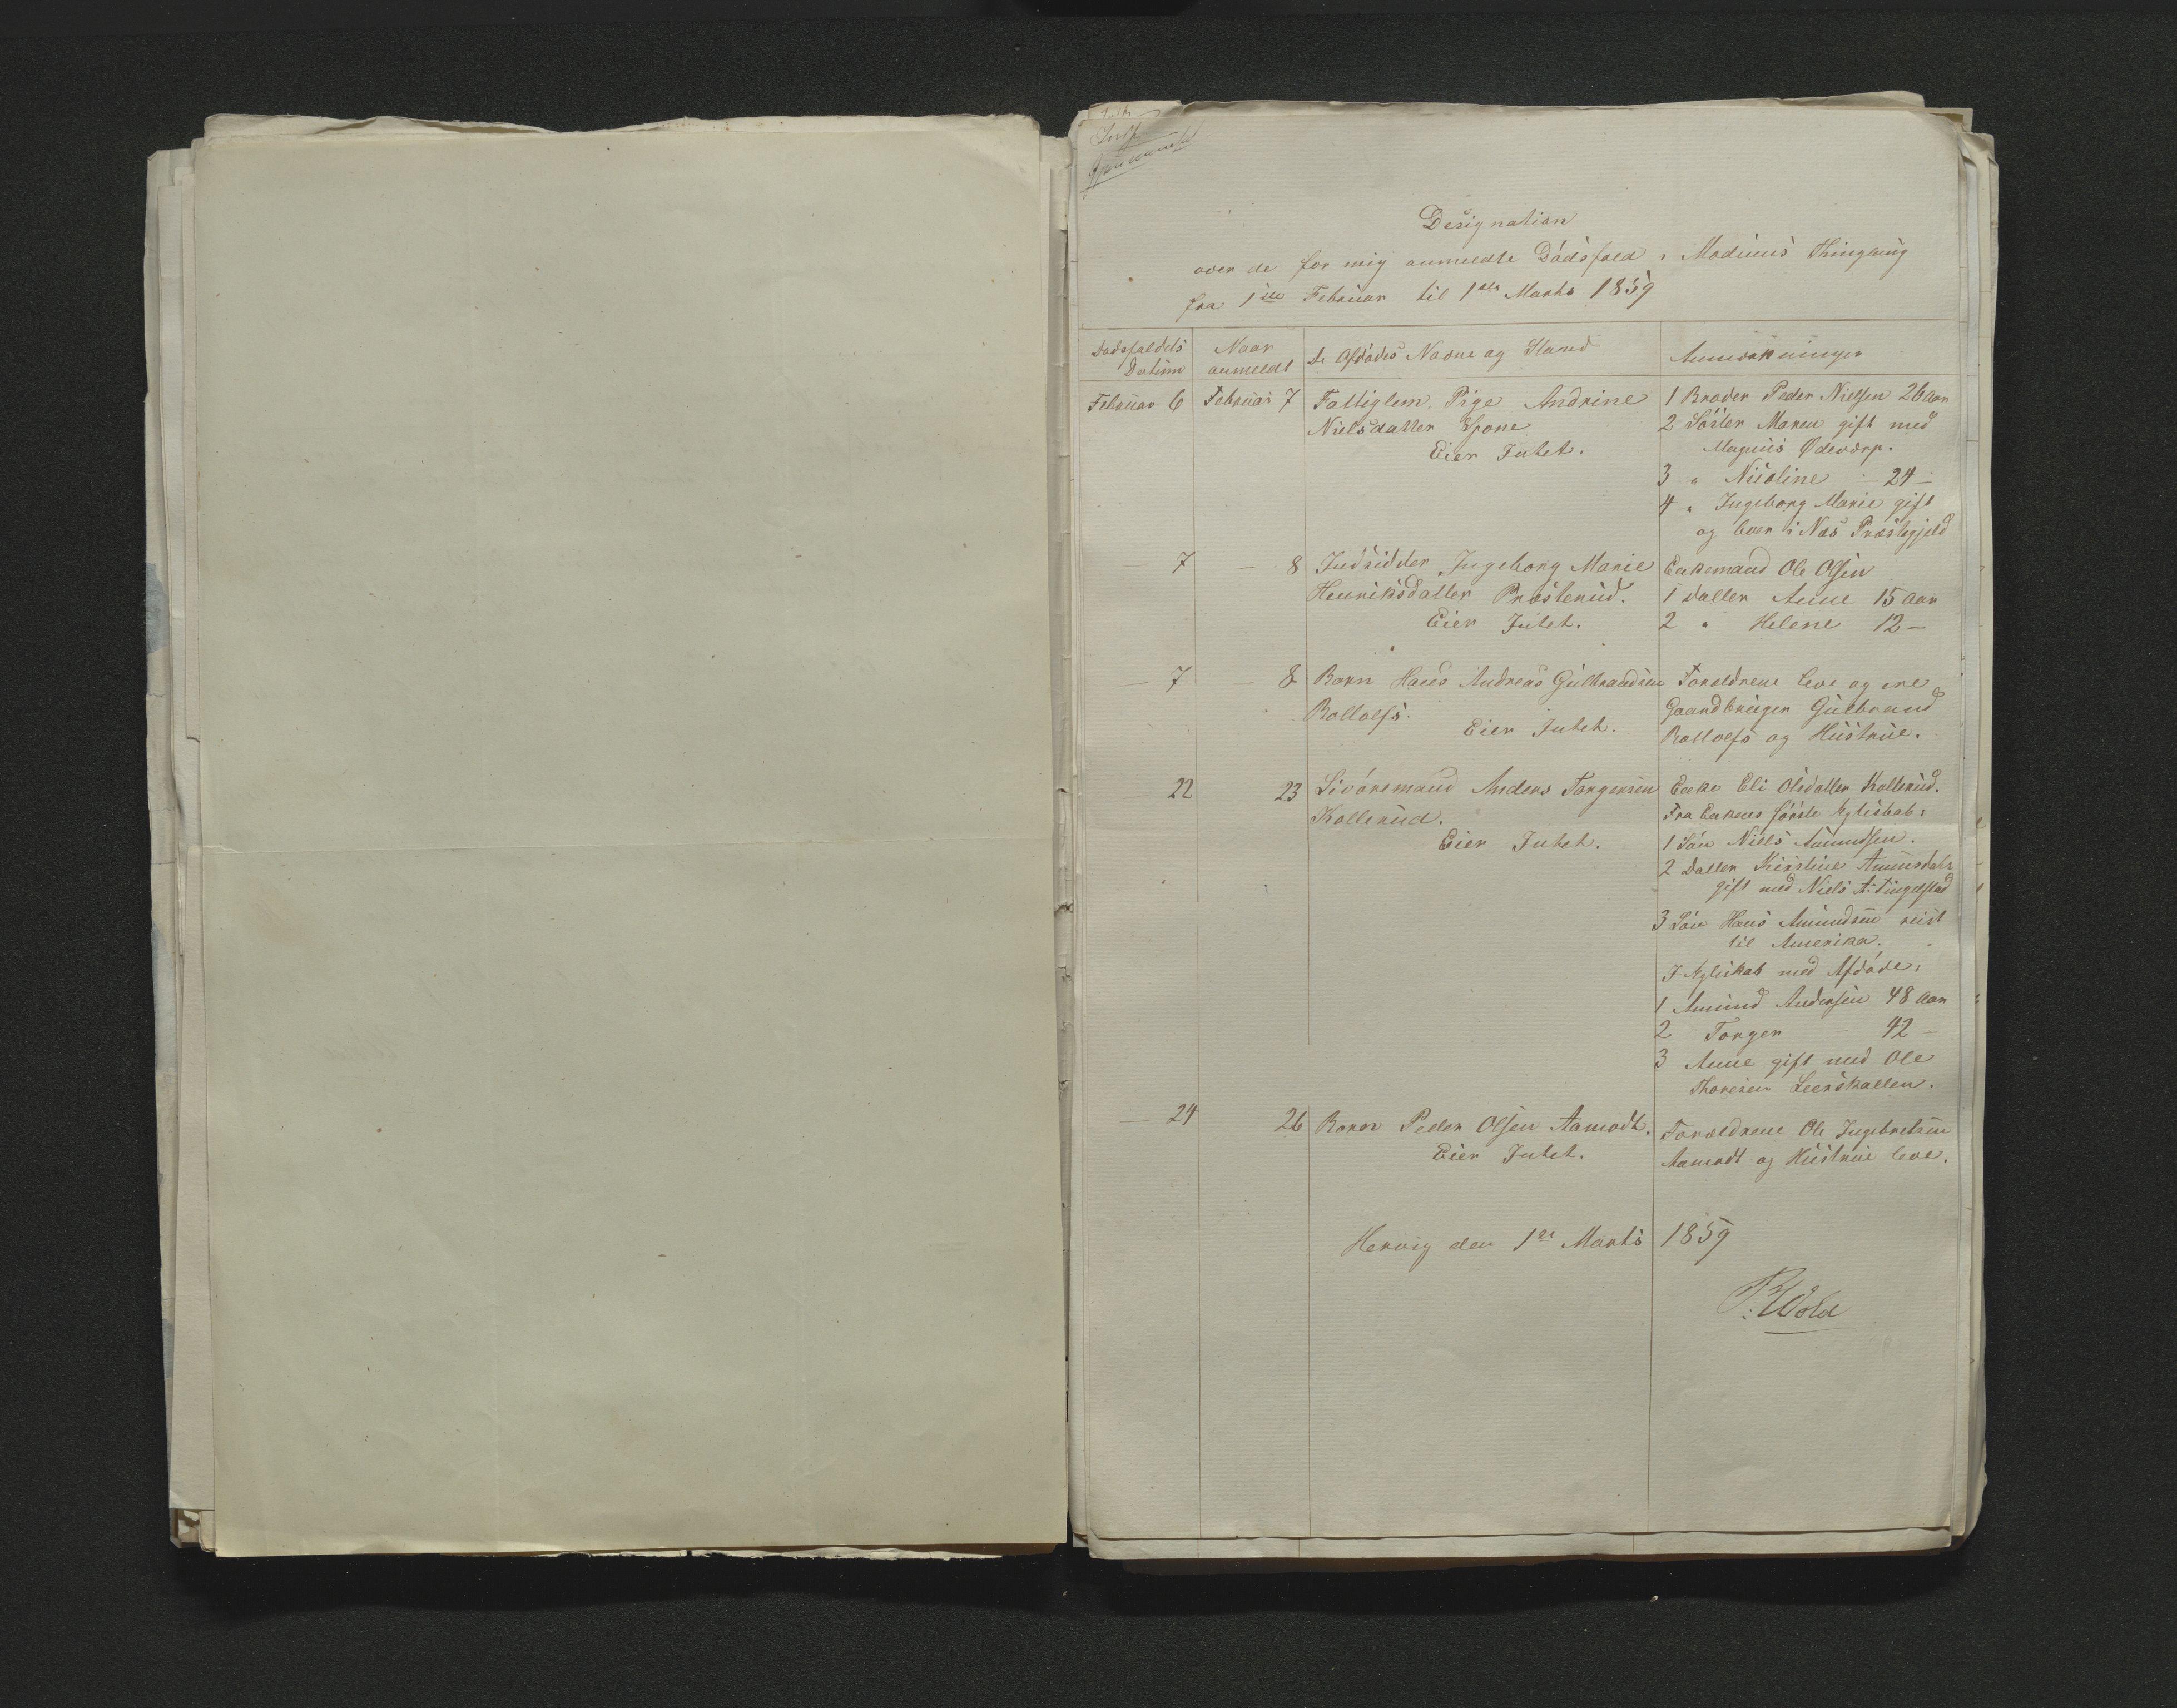 Designation
over de for mig anmeldte Dödsfald i Modums Thinglaug
fra 1ste Februar til 1ste Marts 1859
Dødsfaldets Datum
Naar anmeldt
De Afdödes Navne og Stand
Anmærkninger
Februar 6 Februar 7 Fattiglem, Pige Andrine
Nielsdatter Spone
Eier Intet.
1 Broder Peder Nielsen 26 Aar
2 Söster Maren gift med
Magnus Ødeværp.
3 " Nicoline – 24 –
4 " Ingeborg Marie gift
og boer i Næs Præstegjeld
7 – 8 Indsidder Ingeborg Marie
Henriksdatter Præsterud.
Eier Intet.
Enkemand Ole Olsen
1 Datter Anne 15 Aar
2 " Helene 12 –
– 7 – 8 Barn Hans Andreas Gulbrandsen
Rollofs.
Eier Intet.
Forældrene leve og ere
Gaardbruger Gulbrand
Rollofs og Hustrue.
22 23 Livöremand Anders Torgersen
Kollerud.
Eier Intet.
Enke Eli Olsdatter Kollerud.
Fra Enkens förste Ægteskab:
1 Sön Niels Amundsen.
2 Datter Kirstine Amunsdatr
gift med Niels A. Tingelstad
3 Sön Hans Amundsen reist
til Amerika.
I Ægteskab med Afdöde:
1 Amund Andersen 48 Aar
2 Torger 42 –
3 Anne gift med Ole
Thoresen Leerskallen.
– 24 26 Barn Peder Olsen Aamodt.
Eier Intet.
Forældrene Ole Ingebretsen
Aamodt og Hustrue leve.
Hervig den 1ste Marts 1859